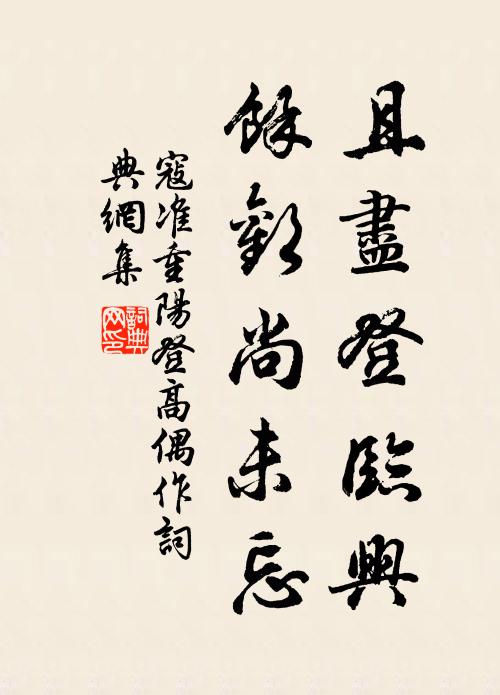 且盡登臨興
餘歡尚未忘
寇准重陽登高偶作詞
典網集
詞典網印